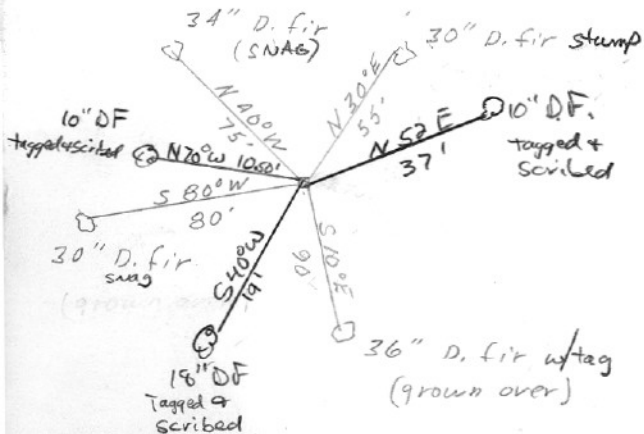 34" D. fir
(SNAG)
30" D. fir stump
N 40° W
75'
N 30° E
55'
10" D.F.
tagged &
scribed
N 52 E
37'
10" DF
tagged & scribed
N 70° W 10.50'
S 80° W
80'
30" D. fir
snag
(grown over)
S 40° W
19'
18" DF
Tagged &
scribed
S 10° E
90'
36" D. fir w/tag
(grown over)